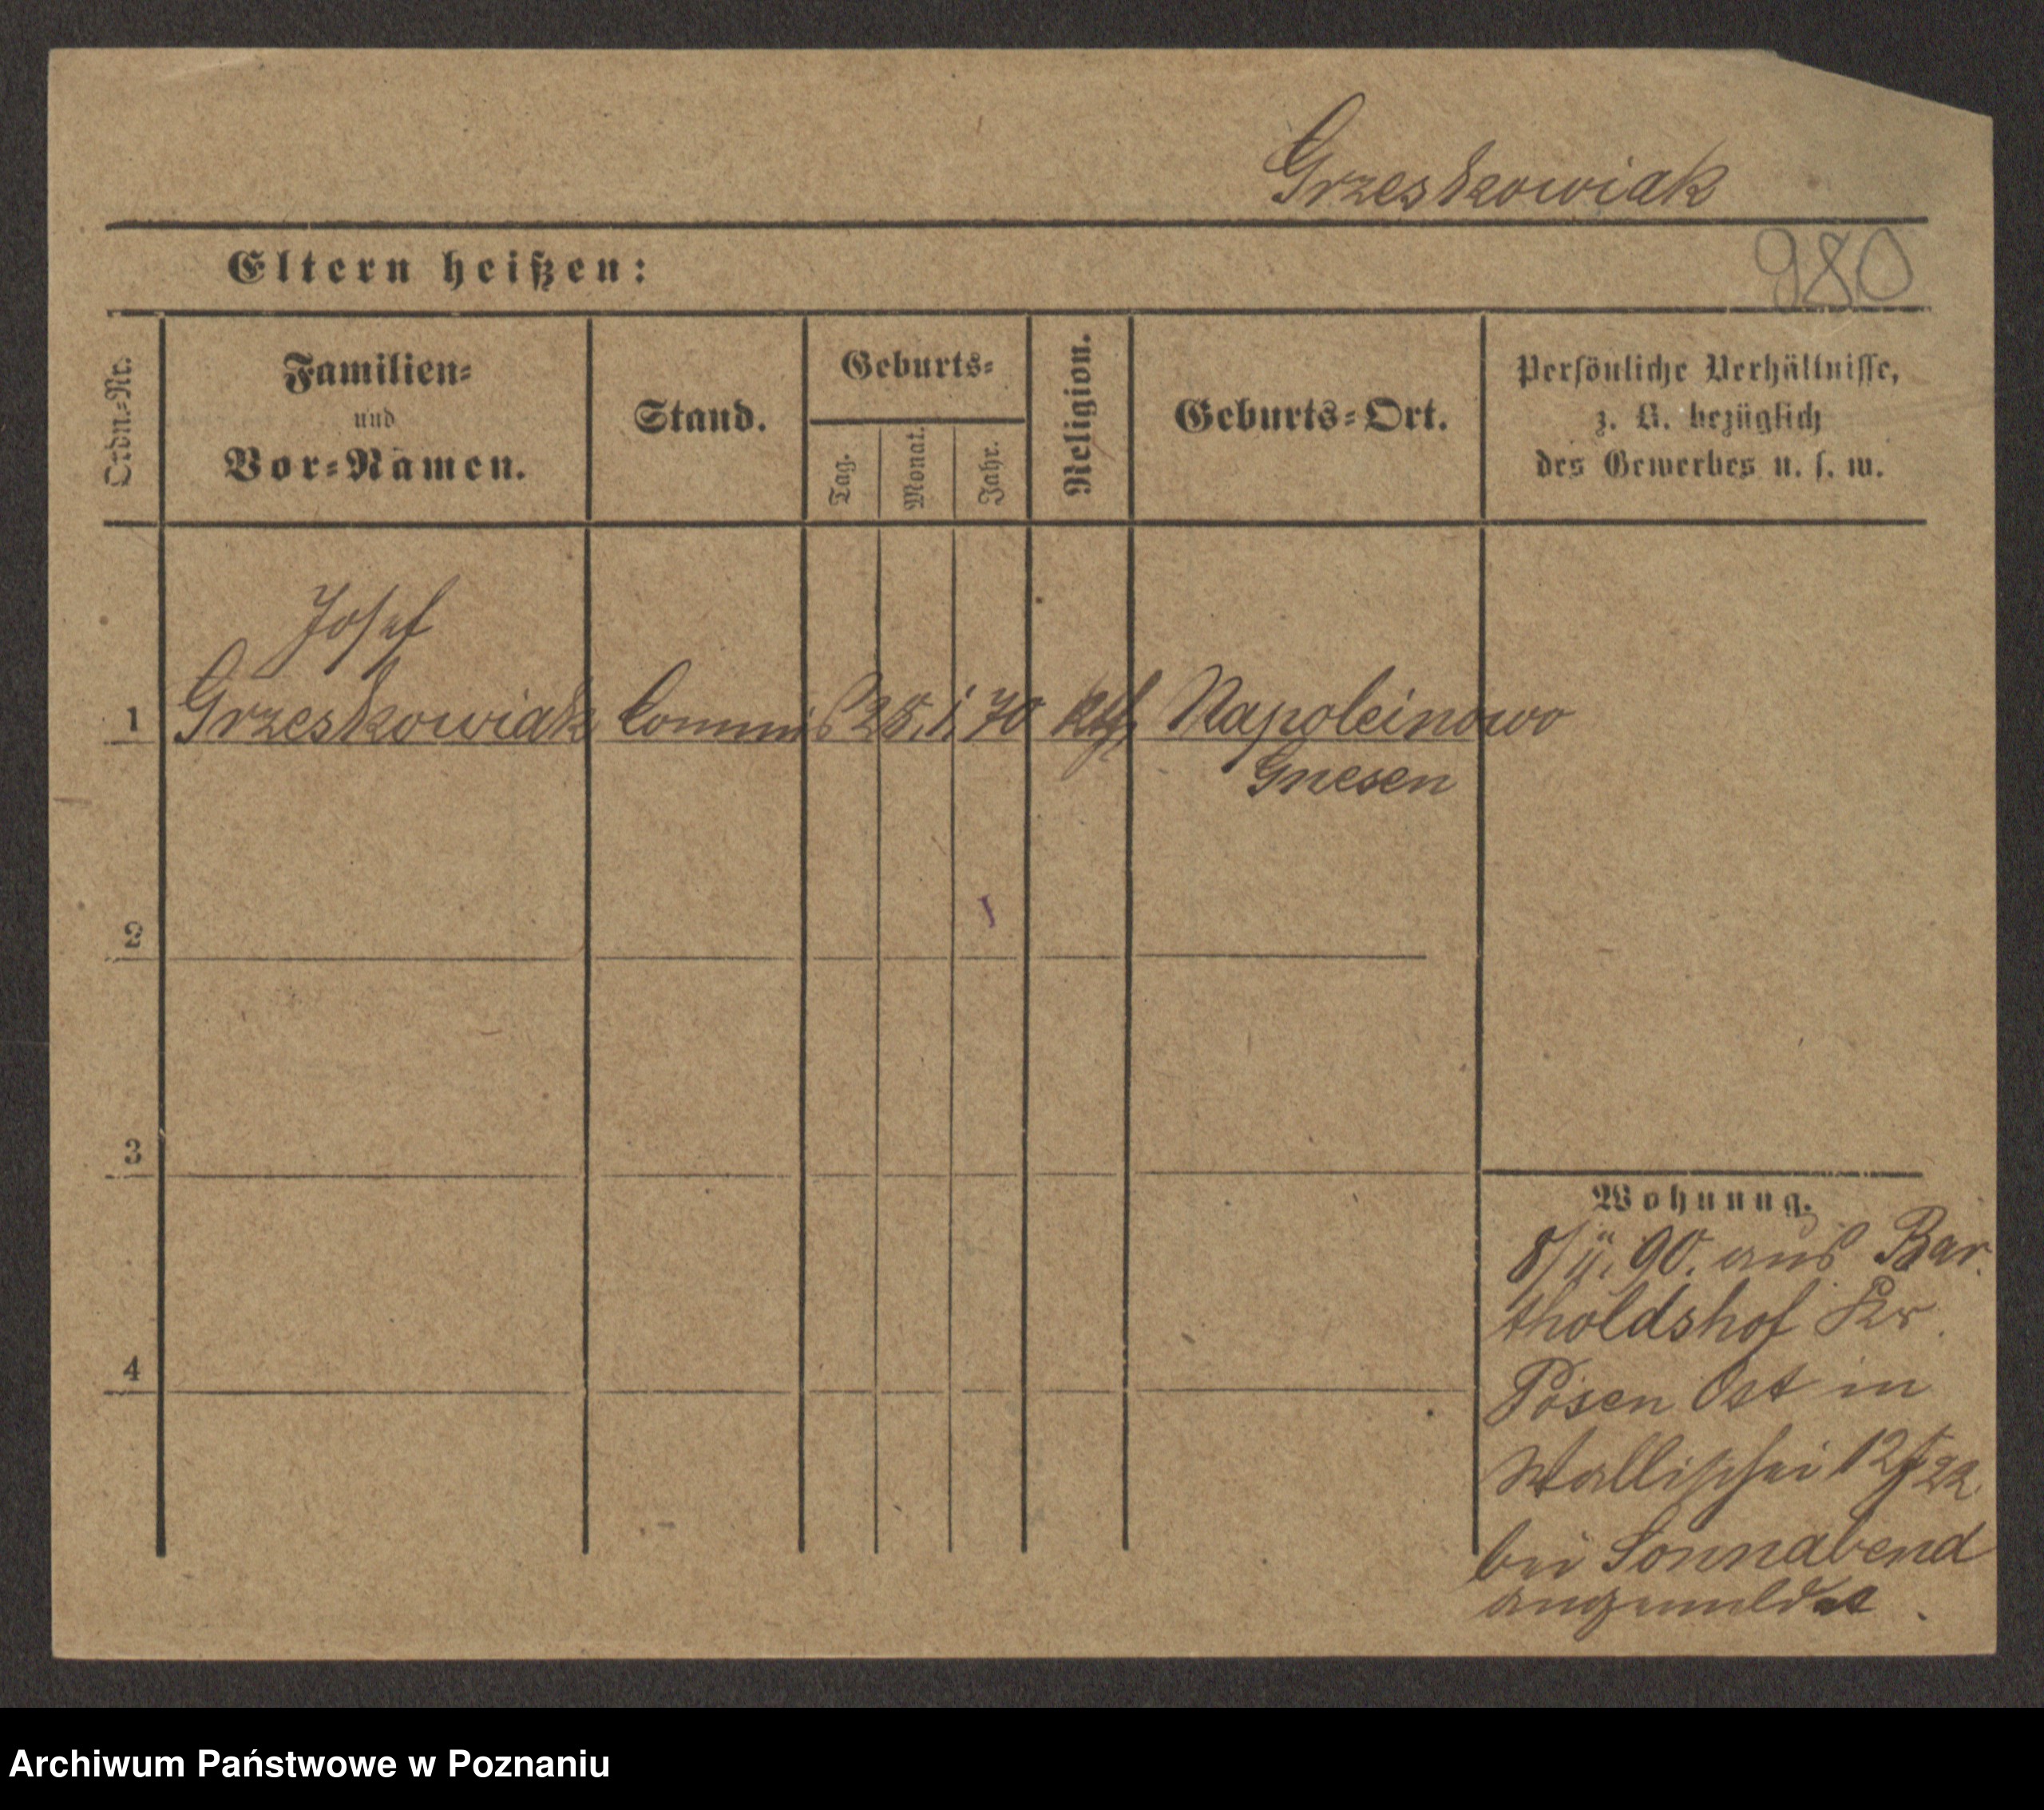 Grzeskowiak
980
Eltern heißen:
Ordn.-Nr.
Familien-
und
Vor-Namen.
Stand.
Geburts-
Tag.
Monat.
Jahr.
Religion.
Geburts-Ort.
Persönliche Verhältnisse,
z. B. bezüglich
des Gewerbes u. s. w.
Josef
1 Grzeskowiak Commis 25. 1. 70 kth. Napoleinowo
Gnesen
2
3
4
Wohnung.
90. aus Bar
tholdshof Kr.
Posen Ost in
Wallischei 12/22
bei Sonnabend
angemeldet.
Archiwum Państwowe w Poznaniu